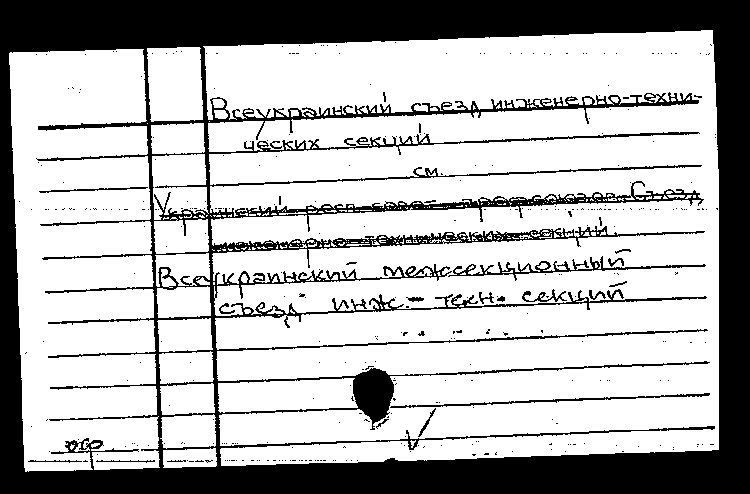 Всеукраинский съезд инженерно-техни-
ческих секций
см.
Украинский респ. совет профсоюзов. Съезд
инженерно-технических секций.
Всеукраинский межсекционный
съезд инж.- техн. секций